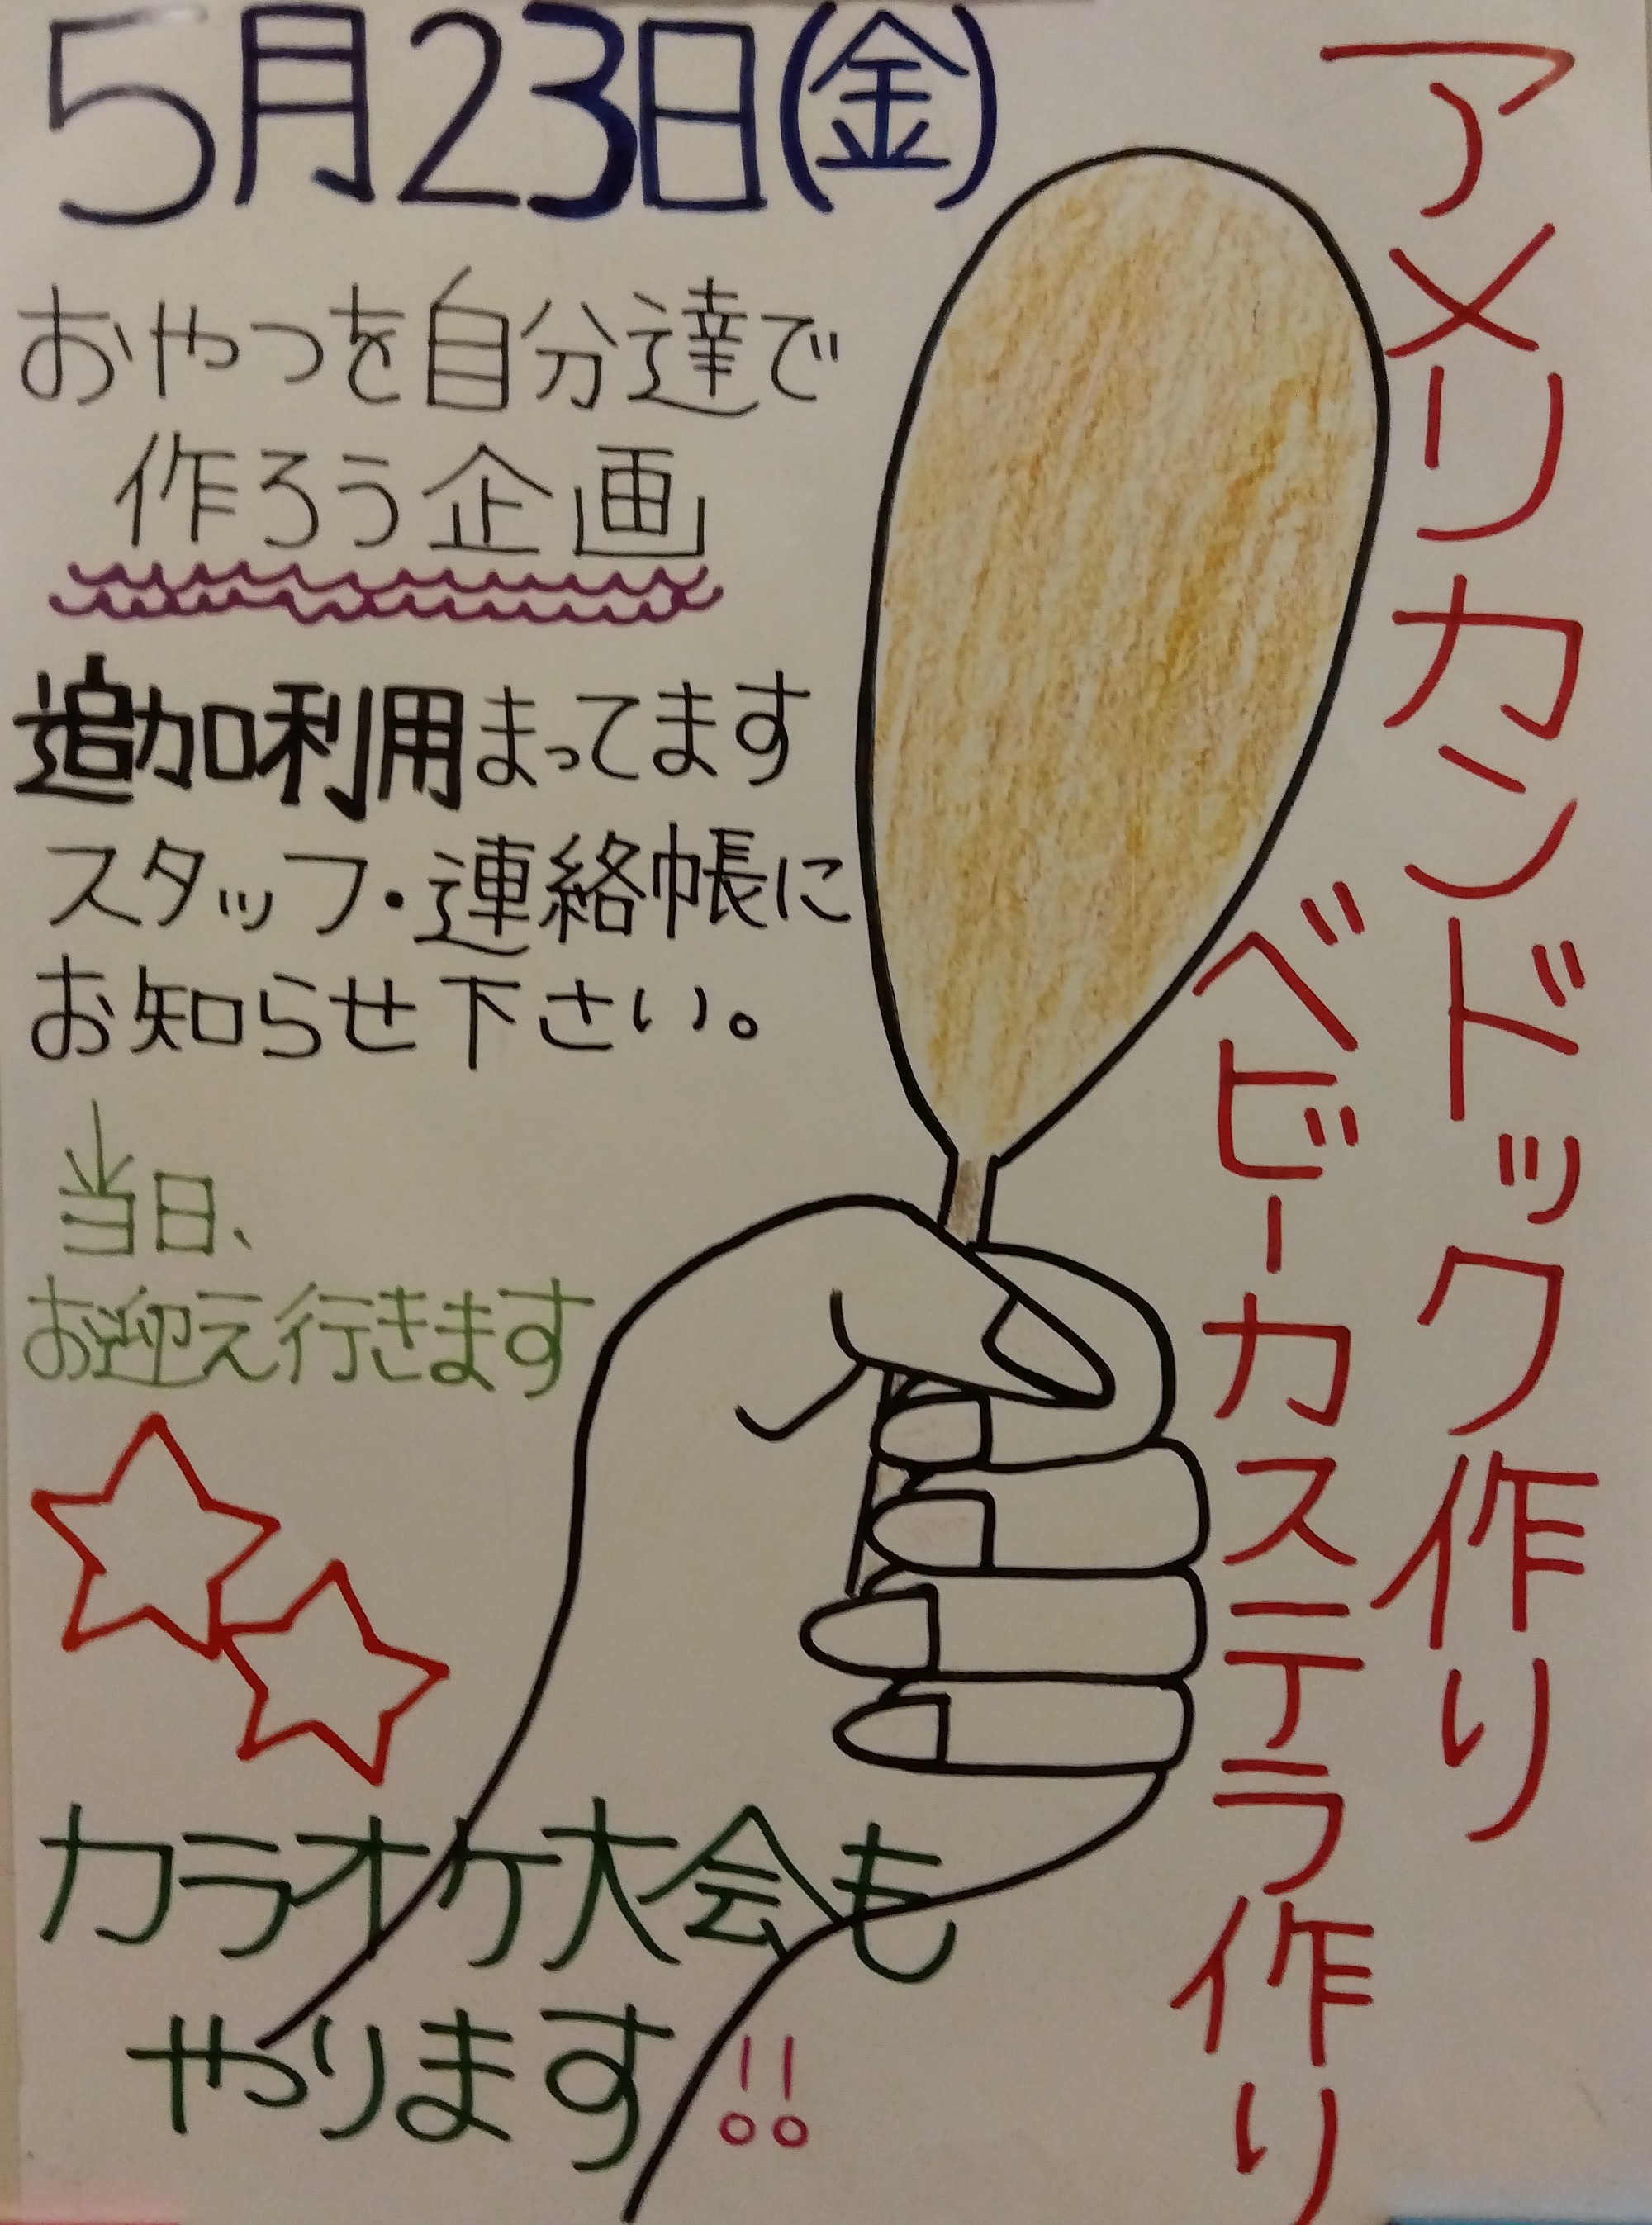 5月23日(金)
アメリカンドック作り
ベビーカステラ作り
おやつを自分達で
作ろう企画
追加利用まってます
スタッフ・連絡帳に
お知らせ下さい。
当日、
お迎え行きます
カラオケ大会も
やります!!